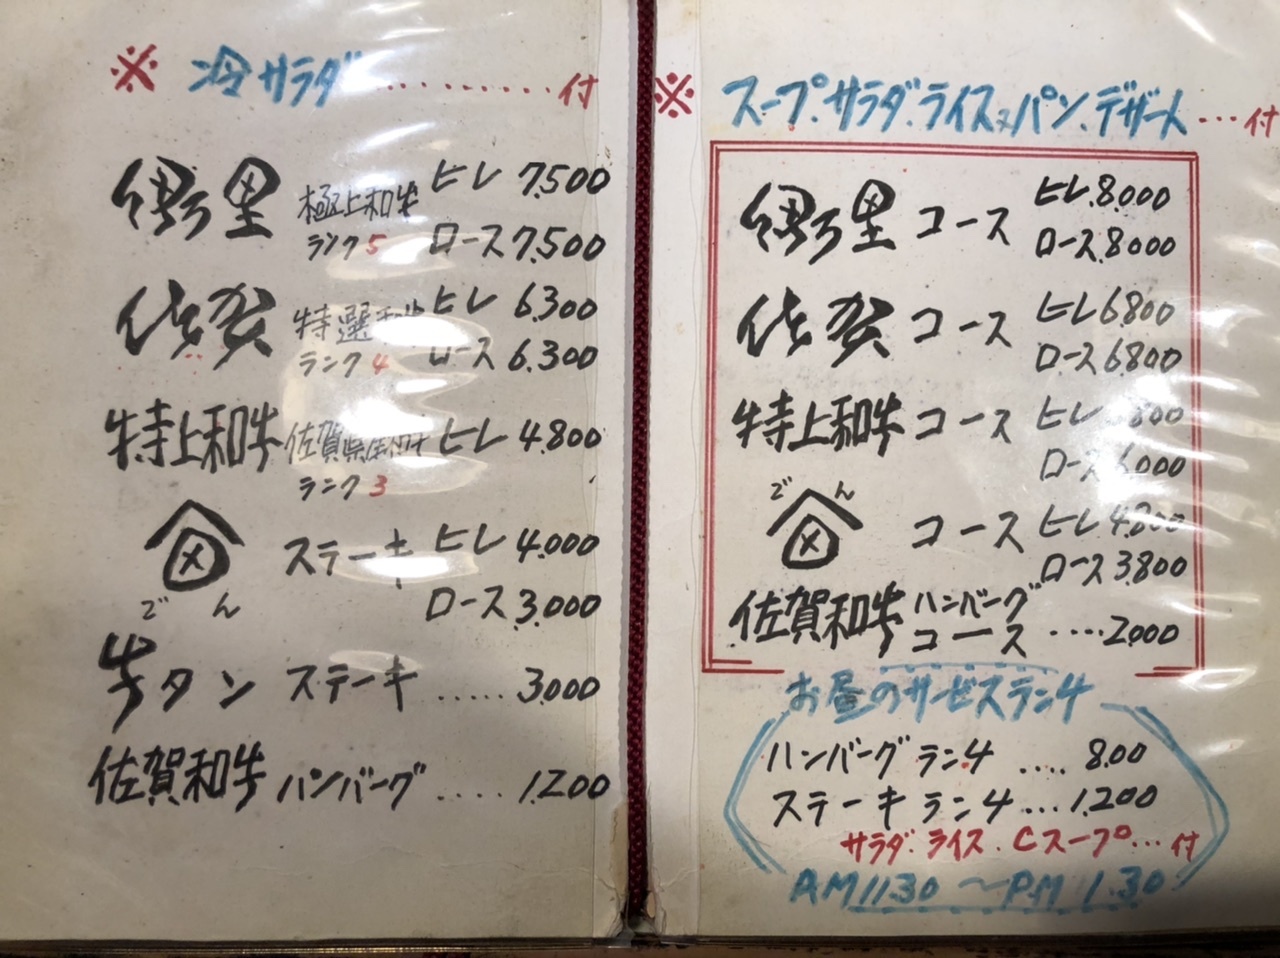 ※ 冷サラダ........付
極上和牛 ヒレ 7.500
ランク5 ロース 7.500
佐賀 特選和牛 ヒレ 6.300
ランク4 ロース 6.300
特上和牛 佐賀県産和牛 ヒレ 4.800
ランク3
ステーキ ヒレ 4.000
ごん ロース 3.000
牛タン ステーキ ..... 3.000
佐賀和牛 ハンバーグ ..... 1.200
※ スープ.サラダ.ライス又パン.デザート...付
コース ヒレ.8.000
ロース.8.000
佐賀 コース ヒレ 6.800
ロース 6.800
特上和牛 コース ヒレ
ロース 6.000
ごん コース ヒレ 4.800
ロース 3.800
佐賀和牛 ハンバーグ
コース ....2.000
お昼のサービスランチ
ハンバーグ ランチ .... 8.00
ステーキ ランチ ...1.200
サラダ.ライス.Cスープ...付
AM11.30 〜P.M 1.30